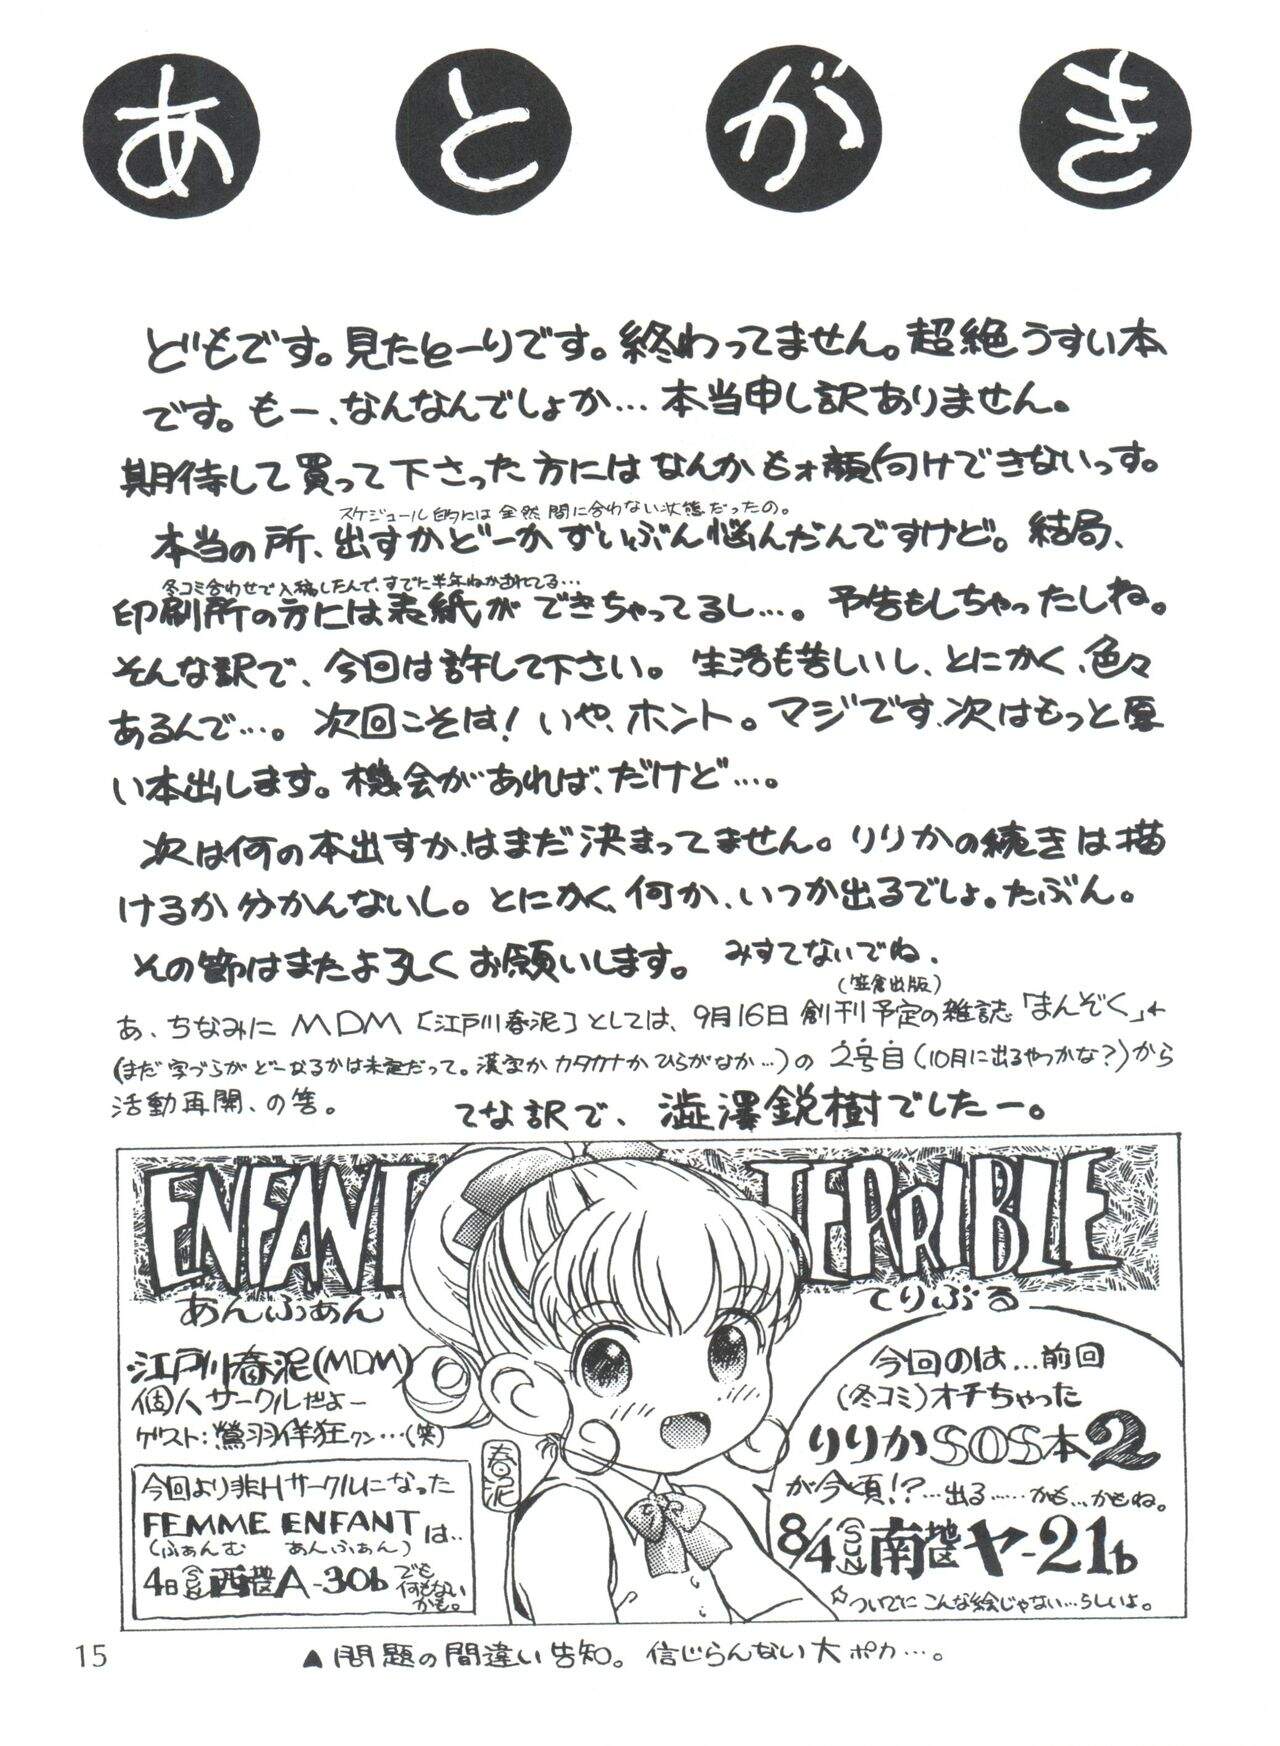 あとがき
どもです。見たとーりです。終わってません。超絶うすい本
です。もー、なんなんでしょか…本当申し訳ありません。
期待して買って下さった方にはなんかもォ顔向けできないっす。
スケジュール的には全然間に合わない状態だったの。
本当の所、出すかどーかずいぶん悩んだんですけど。結局、
冬コミ合わせで入稿したんで、すでに半年ねかされてる…
印刷所の方には表紙ができちゃってるし…。予告もしちゃったしね。
そんな訳で、今回は許して下さい。生活も苦しいし、とにかく、色々
あるんで…。次回こそは!いや、ホント。マジです、次はもっと厚
い本出します。機会があれば、だけど…。
次は何の本出すか、はまだ決まってません。りりかの続きは描
けるか分かんないし。とにかく、何か、いつか出るでしょ。たぶん。
その節はまたよろしくお願いします。みすてないでね、
(笠倉出版)
あ、ちなみにMDM[江戸川春泥]としては、9月16日創刊予定の雑誌「まんぞく」
(まだ字づらがどーなるかは未定だって。漢字かカタカナかひらがなか…)の2号目(10月に出るやつかな?)から
活動再開、の筈。
てな訳で、澁澤鋭樹でしたー。
ENFANT TERRIBLE
あんふぁん てりぶる
江戸川春泥(MDM)
個人サークルだよー
ゲスト:鶯羽洋狂クン…(笑)
今回より非Hサークルになった
FEMME ENFANTは…
(ふぁんむ あんふぁん)
4日(SUN)西地区A-30b でも何もないかも。
春泥
今回のは…前回
(冬コミ)オチちゃった
りりかSOS本2
が今頃!?…出る……かも…かもね。
8/4(SUN)南地区ヤ-21b
☆ついでにこんな絵じゃない…らしいよ。
▲問題の間違い告知。信じらんない大ポカ…。
15